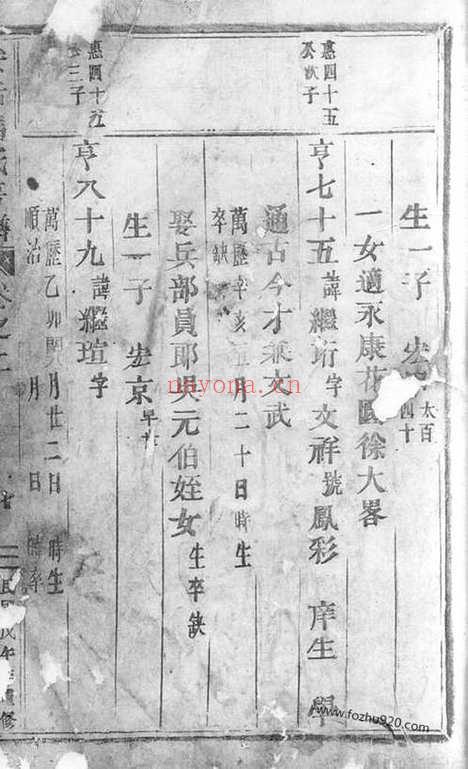 生一子 宏 太百四十
一女適永康花園徐大畧
惠四十五
公次子
亨七十五諱繼珩字文祥號鳳彩 庠生 學
通古今才兼文武
萬歷辛亥五月二十日時生
卒缺
娶兵部員郎吳元伯姪女 生卒缺
生一子 宏京早世
惠四十五
三子
亨八十九諱繼瑄字
萬歷乙卯閏月廿二日 時生
順治 月 日 時卒
卷之
戊午 修
nayona.cn
www.fozhu920.com